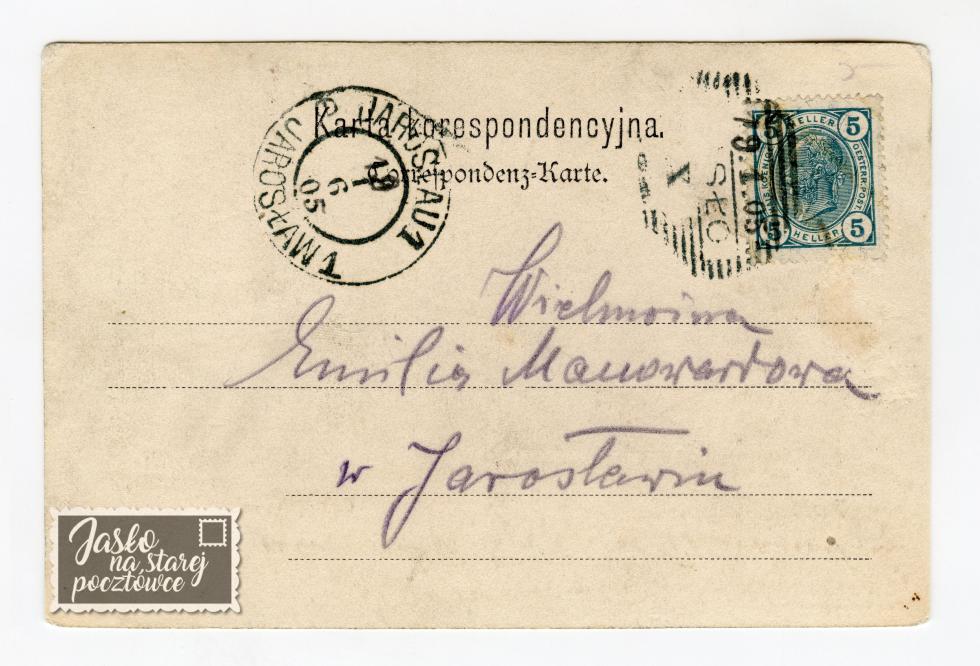 Karta korespondencyjna.
Correspondenz-Karte.
JAROSLAU 1
JAROSŁAW 1
19
1
6
05
19.1.05
5 HELLER 5
OESTERR. POST.
5 HELLER 5
Wielmożna
Emilia Manowardowa
w Jarosławiu
Jasło
na starej
pocztówce